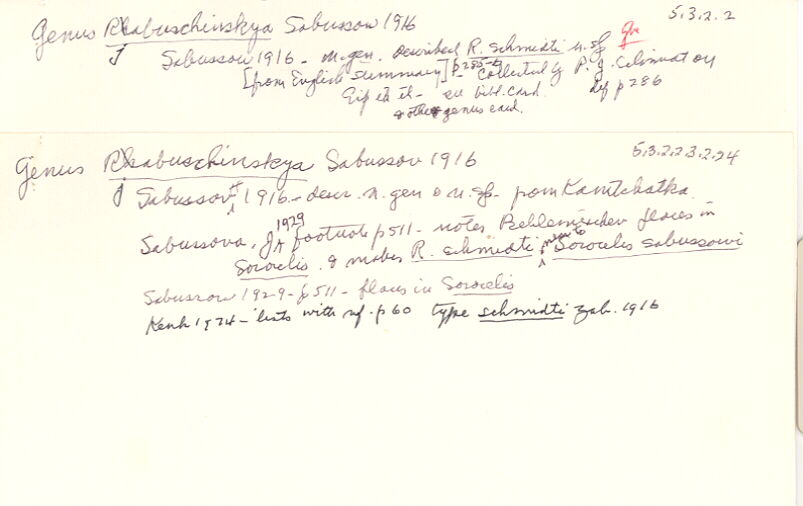 Genus Rhabuschinskya Sabussow 1916 5.3.2.2
Sabussow 1916 - n.gen. Described R. schmidti n.sp
[from English summary] p285-6 - Collected by P. J.
def p 286
bibl. card.
& other genus card.
Genus Rhabuschinskya Sabussov 1916 5.3.2.2.3.2.24
Sabussov 1916 - descr. n.gen & n.sp. from Kamtchatka
Sabussova, 1929 footnote p511 - notes places in
Sorocelis & makes R. schmidti new to Sorocelis sabussowi
Sabussow 1929 - p511 - places in Sorocelis
Kenk 1974 - lists with sp. p60 type schmidti Zab. 1916